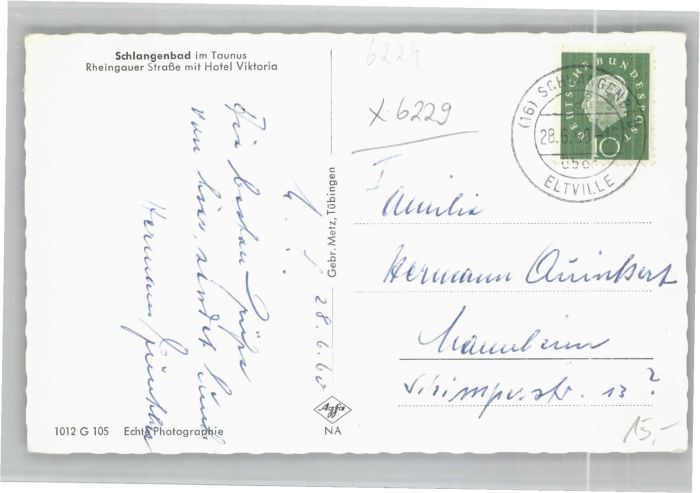 Schlangenbad im Taunus
Rheingauer Straße mit Hotel Viktoria
6229
x 6229
DEUTSCHE BUNDESPOST
10
(16) SCHLANGENBAD
28.6.60
über
ELTVILLE
Die besten Grüße
von hier, sendet Euch
Hermann Günther
28.6.60
Gebr. Metz, Tübingen
Familie
Hermann Quinkert
Mannheim
Schimperstr. 13?
1012 G 105 Echte Photographie
Agfa
NA
15,-